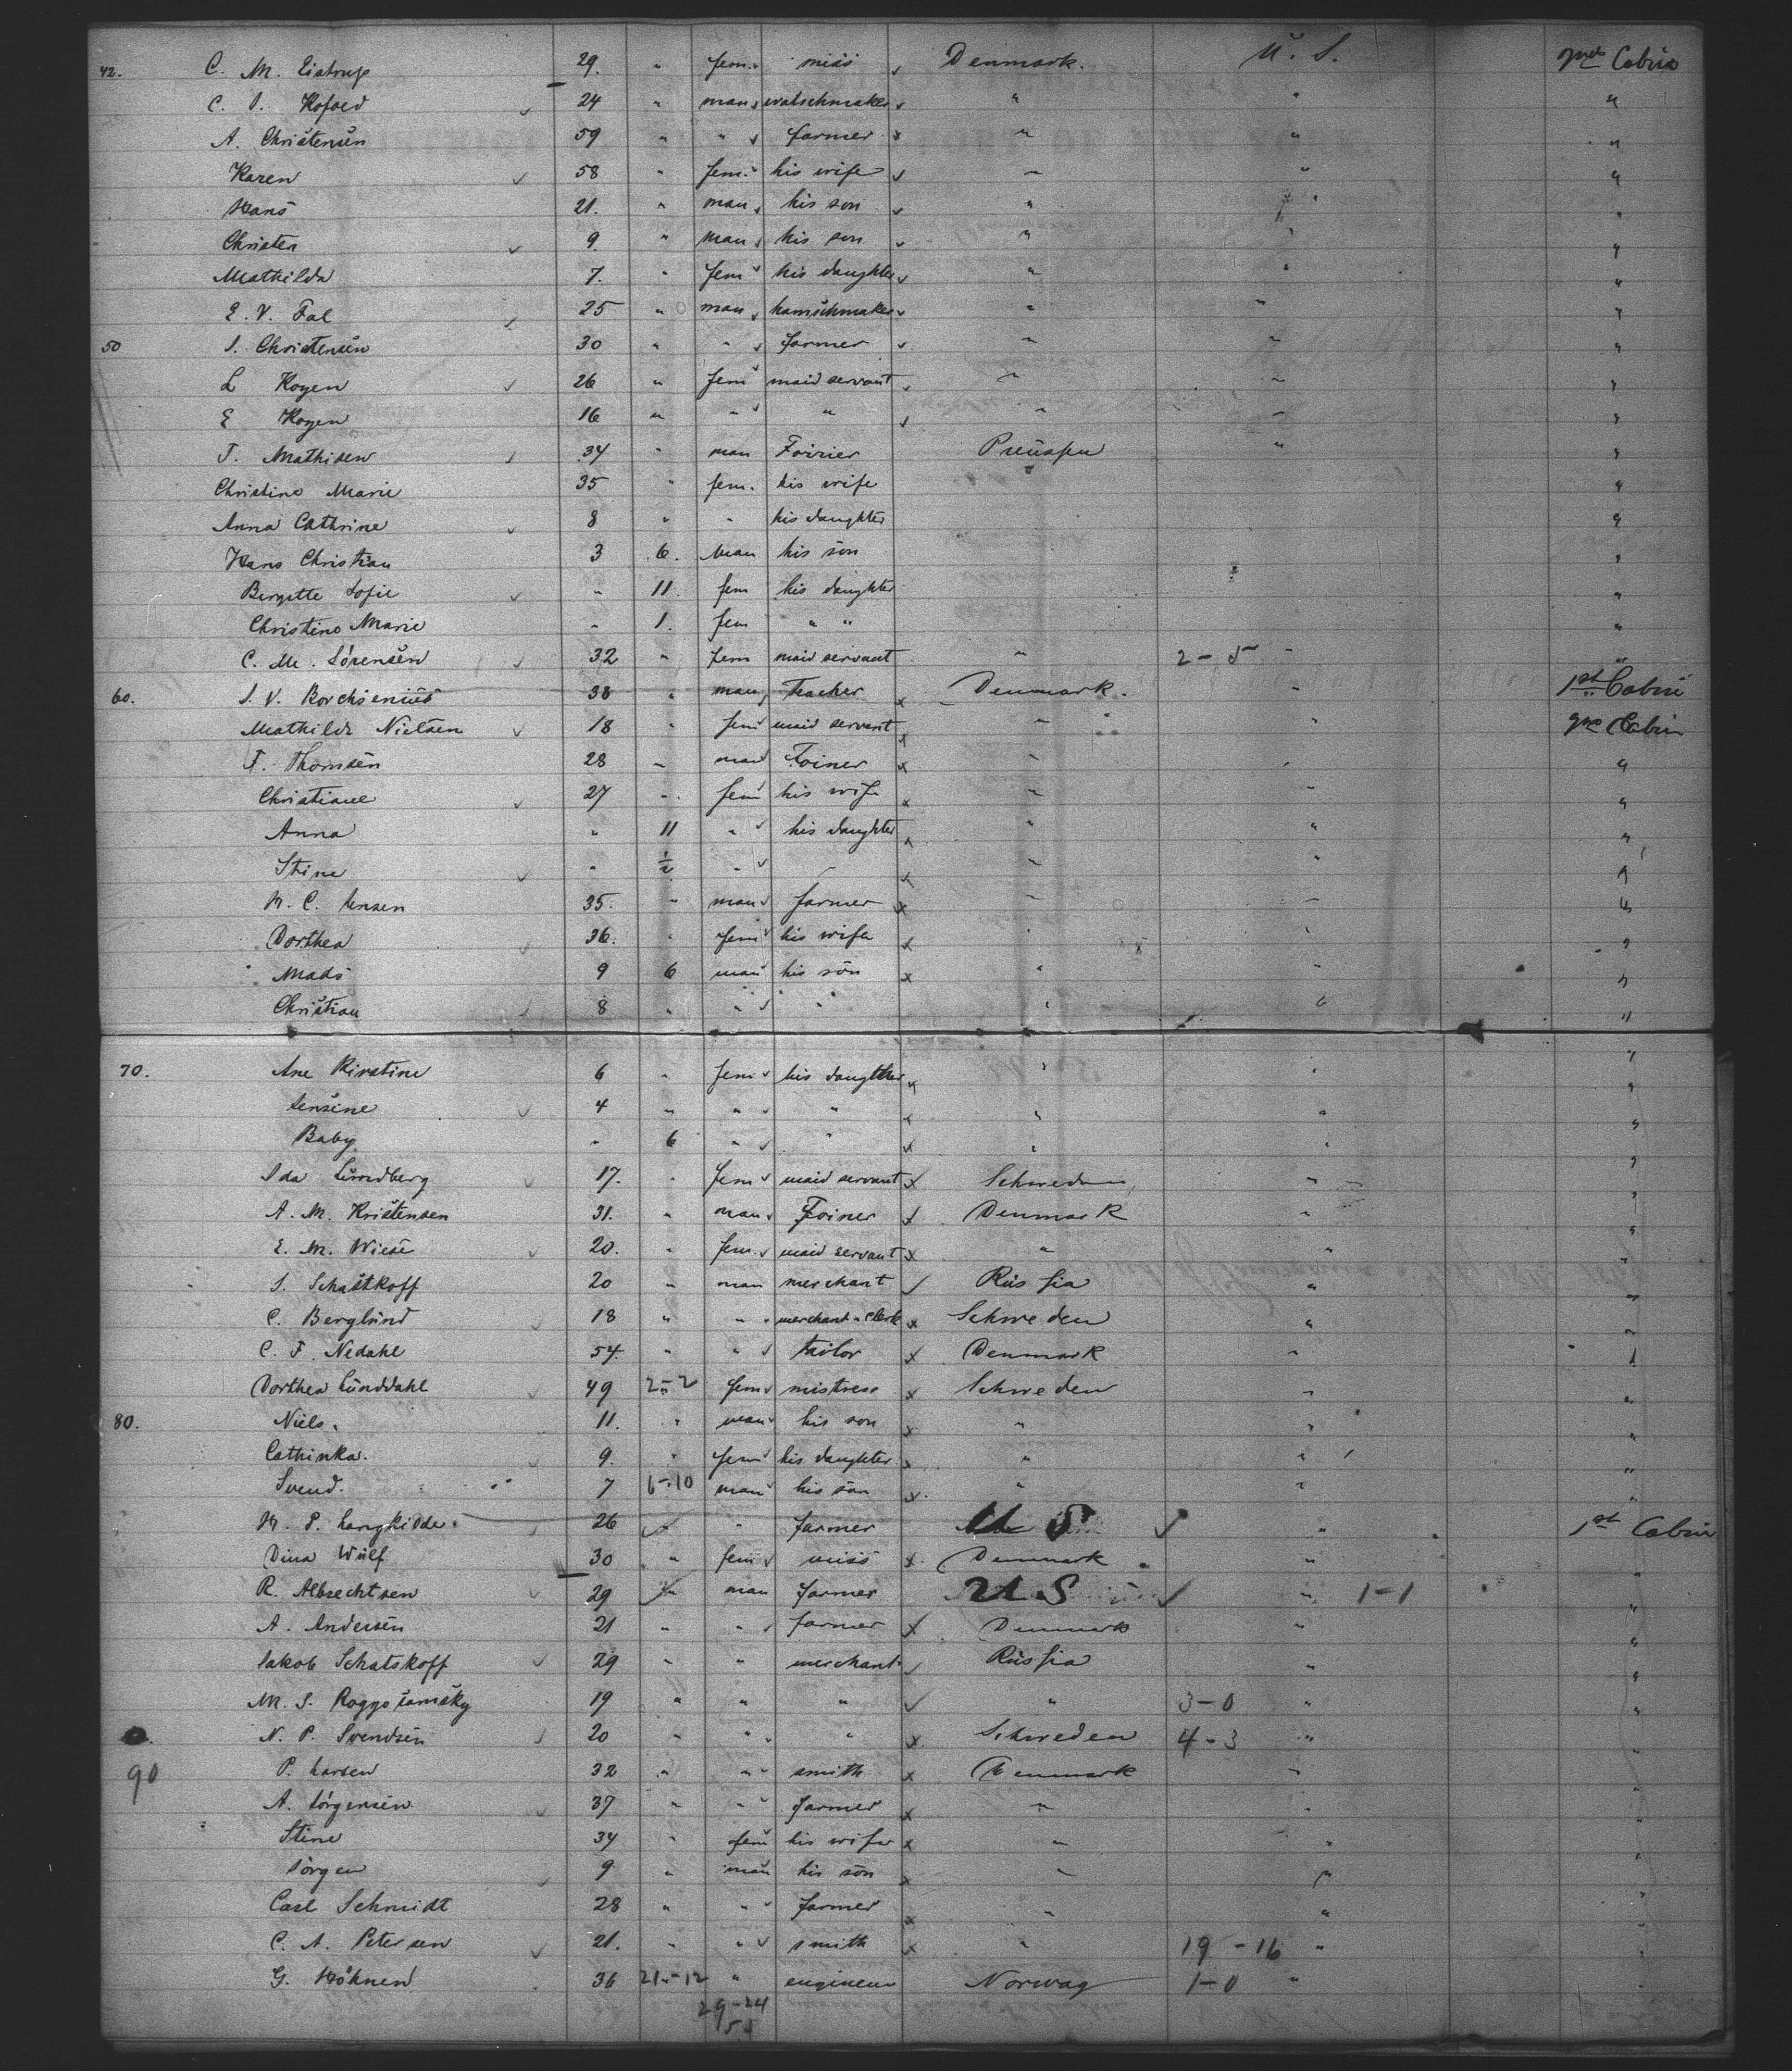 42. C. M. Eistrup 29. " fem. miss Denmark. U. S. 2nd Cabin
C. I. Kofoed 24 " man watschmaker " " "
A. Christensen 59 " " farmer " " "
Karen 58 " fem. his wife " " "
Hans 21. " man his son " " "
Christen 9. " man his son " " "
Mathilda 7. " fem his daughter " " "
E. V. Fal 25 " man " " "
50 I. Christensen 30 " " farmer " " "
L Koyen 26 " fem maid servant " " "
E Koyen 16 " " " " " "
T. Mathisen 34 " man Preussen " "
Christine Marie 35 " fem. his wife "
Anna Cathrine 8 " " his daughter "
Hans Christian 3 6. man his son "
Birgitte Sofie " 11. fem his daughter "
Christine Marie " 1. fem " " "
C. M. Sörensen 32 " fem maid servant " 2-5 " "
60. I. V. Borchsenius 38 " man Teacher Denmark. " 1st Cabin
Mathilde Nielsen 18 " fem maid servant " " 2nd Cabin
T. Thomsen 28 " man Joiner " " "
Christiane 27 " fem his wife " " "
Anna " 11 " his daughter " " "
Stine " 1/2 " " " "
N. C. Jensen 35. " man farmer " " "
Dorthea 36. " fem his wife " " "
Mads 9 6 man his son " " "
Christian 8 " " " " " "
70. Ane Kirstine 6 " fem his daugther " " "
Jensine 4 " " " " " "
Baby " 6 " " " " "
Ida Lundberg 17. " fem maid servant Schweden " "
A. M. Kristensen 31. " man Joiner Denmark " "
E. M. Wiese 20. " fem. maid servant " " "
I. Schattkoff 20 " man merchant Russia " "
C. Berglund 18 " " merchant clerk Schweden " "
C. F. Nedahl 54. " " tailor Denmark " "
Dorthea Lunddahl 49 2-2 fem mistress Schweden " "
80. Niels. 11. " man his son " " "
Cathinka. 9. " fem his daughter " " "
Svend. 7 6-10 man his son " " "
N. P. Langkilde 26 " farmer U S " 1st Cabin
Dina Wulf 30 " fem miss Denmark " "
R. Albrechtsen 29 " man farmer U S " 1-1 "
A. Andersen 21 " " farmer Denmark " "
Jakob Schatskoff 29 " " merchant Russia " "
M. S. 19 " " " " 3-0 " "
N. P. Svendsen 20 " " " Schweden 4-3 " "
90 P. Larsen 32 " " smith Denmark " "
A. Jörgensen 37 " " farmer " " "
Stine 34 " fem his wife " " "
Jörgen 9 " man his son " " "
Carl Schmidt 28 " " farmer " " "
C. A. Petersen 21. " " smith " 19-16 " "
G. Köhnen 36 21-12 " engineur Norway 1-0 " "
29-24